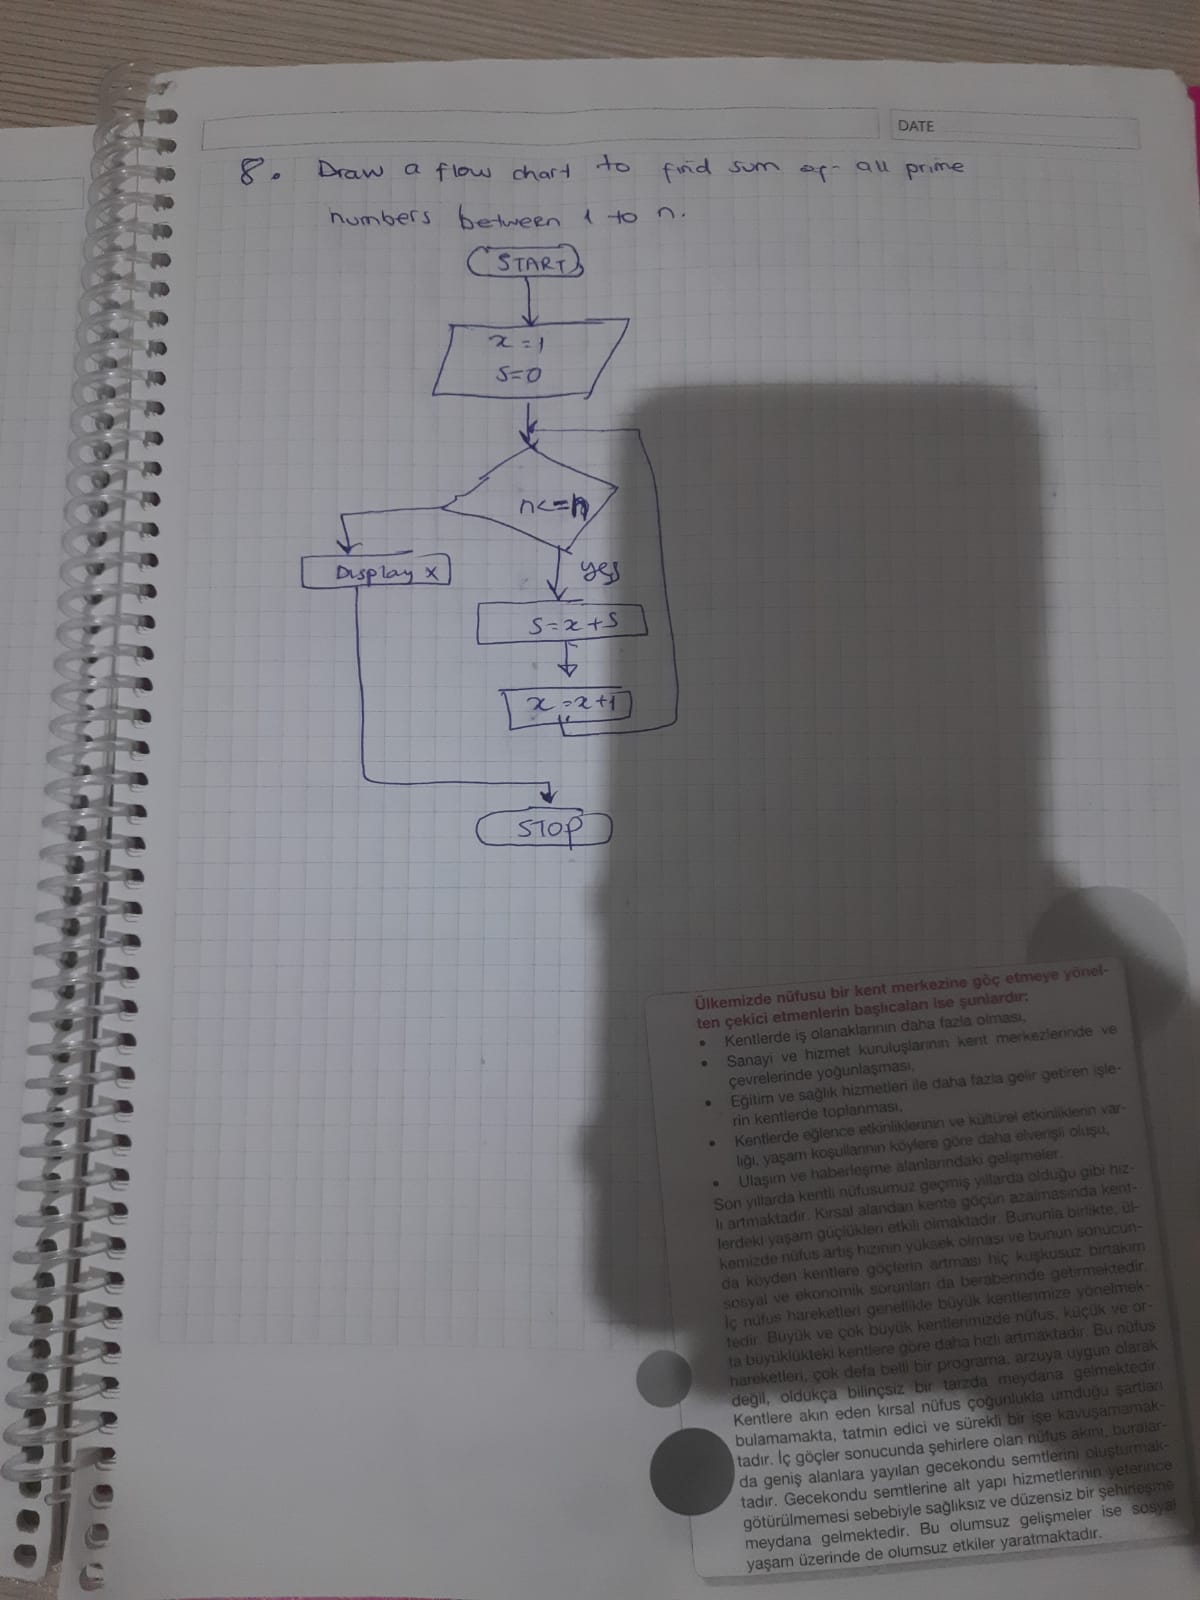 DATE
8. Draw a flow chart to find sum of all prime
numbers between 1 to n.
START
x=1
S=0
n<=n
Display x
yes
S=x+S
x=x+1
STOP
Ülkemizde nüfusu bir kent merkezine göç etmeye yönel-
ten çekici etmenlerin başlıcaları ise şunlardır:
• Kentlerde iş olanaklarının daha fazla olması,
• Sanayi ve hizmet kuruluşlarının kent merkezlerinde ve
çevrelerinde yoğunlaşması,
• Eğitim ve sağlık hizmetleri ile daha fazla gelir getiren işle-
rin kentlerde toplanması,
• Kentlerde eğlence etkinliklerinin ve kültürel etkinliklerin var-
lığı, yaşam koşullarının köylere göre daha elverişli oluşu,
• Ulaşım ve haberleşme alanlarındaki gelişmeler.
Son yıllarda kentli nüfusumuz geçmiş yıllarda olduğu gibi hız-
lı artmaktadır. Kırsal alandan kente göçün azalmasında kent-
lerdeki yaşam güçlükleri etkili olmaktadır. Bununla birlikte, ül-
kemizde nüfus artış hızının yüksek olması ve bunun sonucun-
da köyden kentlere göçlerin artması hiç kuşkusuz birtakım
sosyal ve ekonomik sorunları da beraberinde getirmektedir.
İç nüfus hareketleri genellikle büyük kentlerimize yönelmek-
tedir. Büyük ve çok büyük kentlerimizde nüfus, küçük ve or-
ta büyüklükteki kentlere göre daha hızlı artmaktadır. Bu nüfus
hareketleri, çok defa belli bir programa, arzuya uygun olarak
değil, oldukça bilinçsiz bir tarzda meydana gelmektedir.
Kentlere akın eden kırsal nüfus çoğunlukla umduğu şartları
bulamamakta, tatmin edici ve sürekli bir işe kavuşamamak-
tadır. İç göçler sonucunda şehirlere olan nüfus akını, buralar-
da geniş alanlara yayılan gecekondu semtlerini oluşturmak-
tadır. Gecekondu semtlerine alt yapı hizmetlerinin yeterince
götürülmemesi sebebiyle sağlıksız ve düzensiz bir şehirleşme
meydana gelmektedir. Bu olumsuz gelişmeler ise sosyal
yaşam üzerinde de olumsuz etkiler yaratmaktadır.